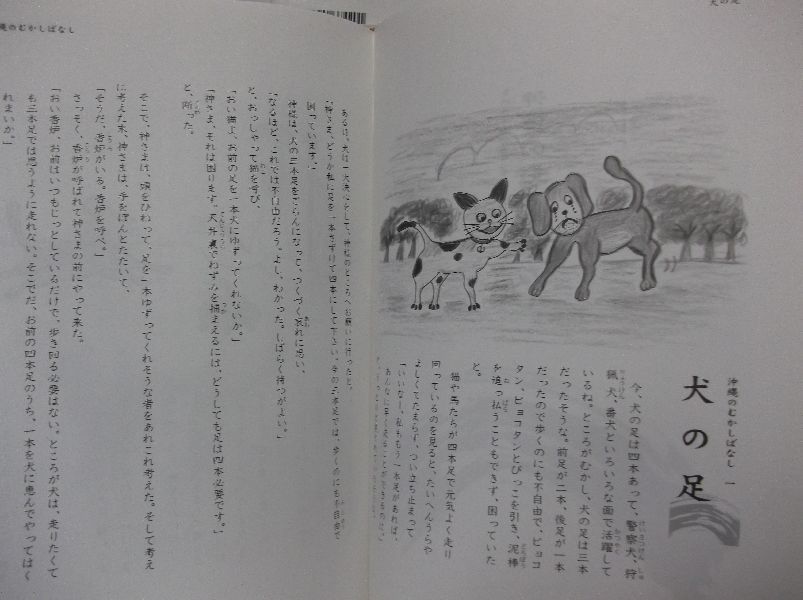 犬の足
沖縄のむかしばなし 一
犬の足
今、犬の足は四本あって、警察犬、狩
猟犬、番犬といろいろな面で活躍して
いるね。ところがむかし、犬の足は三本
だったそうな。前足が二本、後足が一本
だったので歩くのにも不自由で、ピョコ
タン、ピョコタンとびっこを引き、泥棒
を追っ払うこともできず、困っていた
と。
猫や馬たちが四本足で元気よく走り
回っているのを見ると、たいへんうらや
ましくてたまらず、つい立ち止まって
「いいなし、私ももう一本足があれば、
あんなに早く走ることができるのに、
縄のむかしばなし
ある日、犬は一大決心をして、神様のところへお願いに行ったと。
「神さま、どうか私に足を一本さずけて四本にして下さい。今の三本足では、歩くのにも不自由で
困っています。」
神様は、犬の三本足をごらんになって、つくづく哀れに思い、
「なるほど、これでは不自由だろう。よし、わかった。しばらく待つがよい。」
と、おっしゃって猫を呼び、
「おい猫よ、お前の足を一本犬にゆずってくれないか。」
「神さま、それは困ります。天井裏でねずみを捕まえるには、どうしても足は四本必要です。」
と、断った。
そこで、神さまは、頭をひねって、足を一本ゆずってくれそうな者をあれこれ考えた。そして考え
に考えた末、神さまは、手をぽんとたたいて、
「そうだ、香炉がいる。香炉を呼べ。」
さっそく、香炉が呼ばれて神さまの前にやって来た。
「おい香炉、お前はいつもじっとしているだけで、歩き回る必要はない。ところが犬は、走りたくて
も三本足では思うように走れない。そこでだ、お前の四本足のうち、一本を犬に恵んでやってはく
れまいか。」